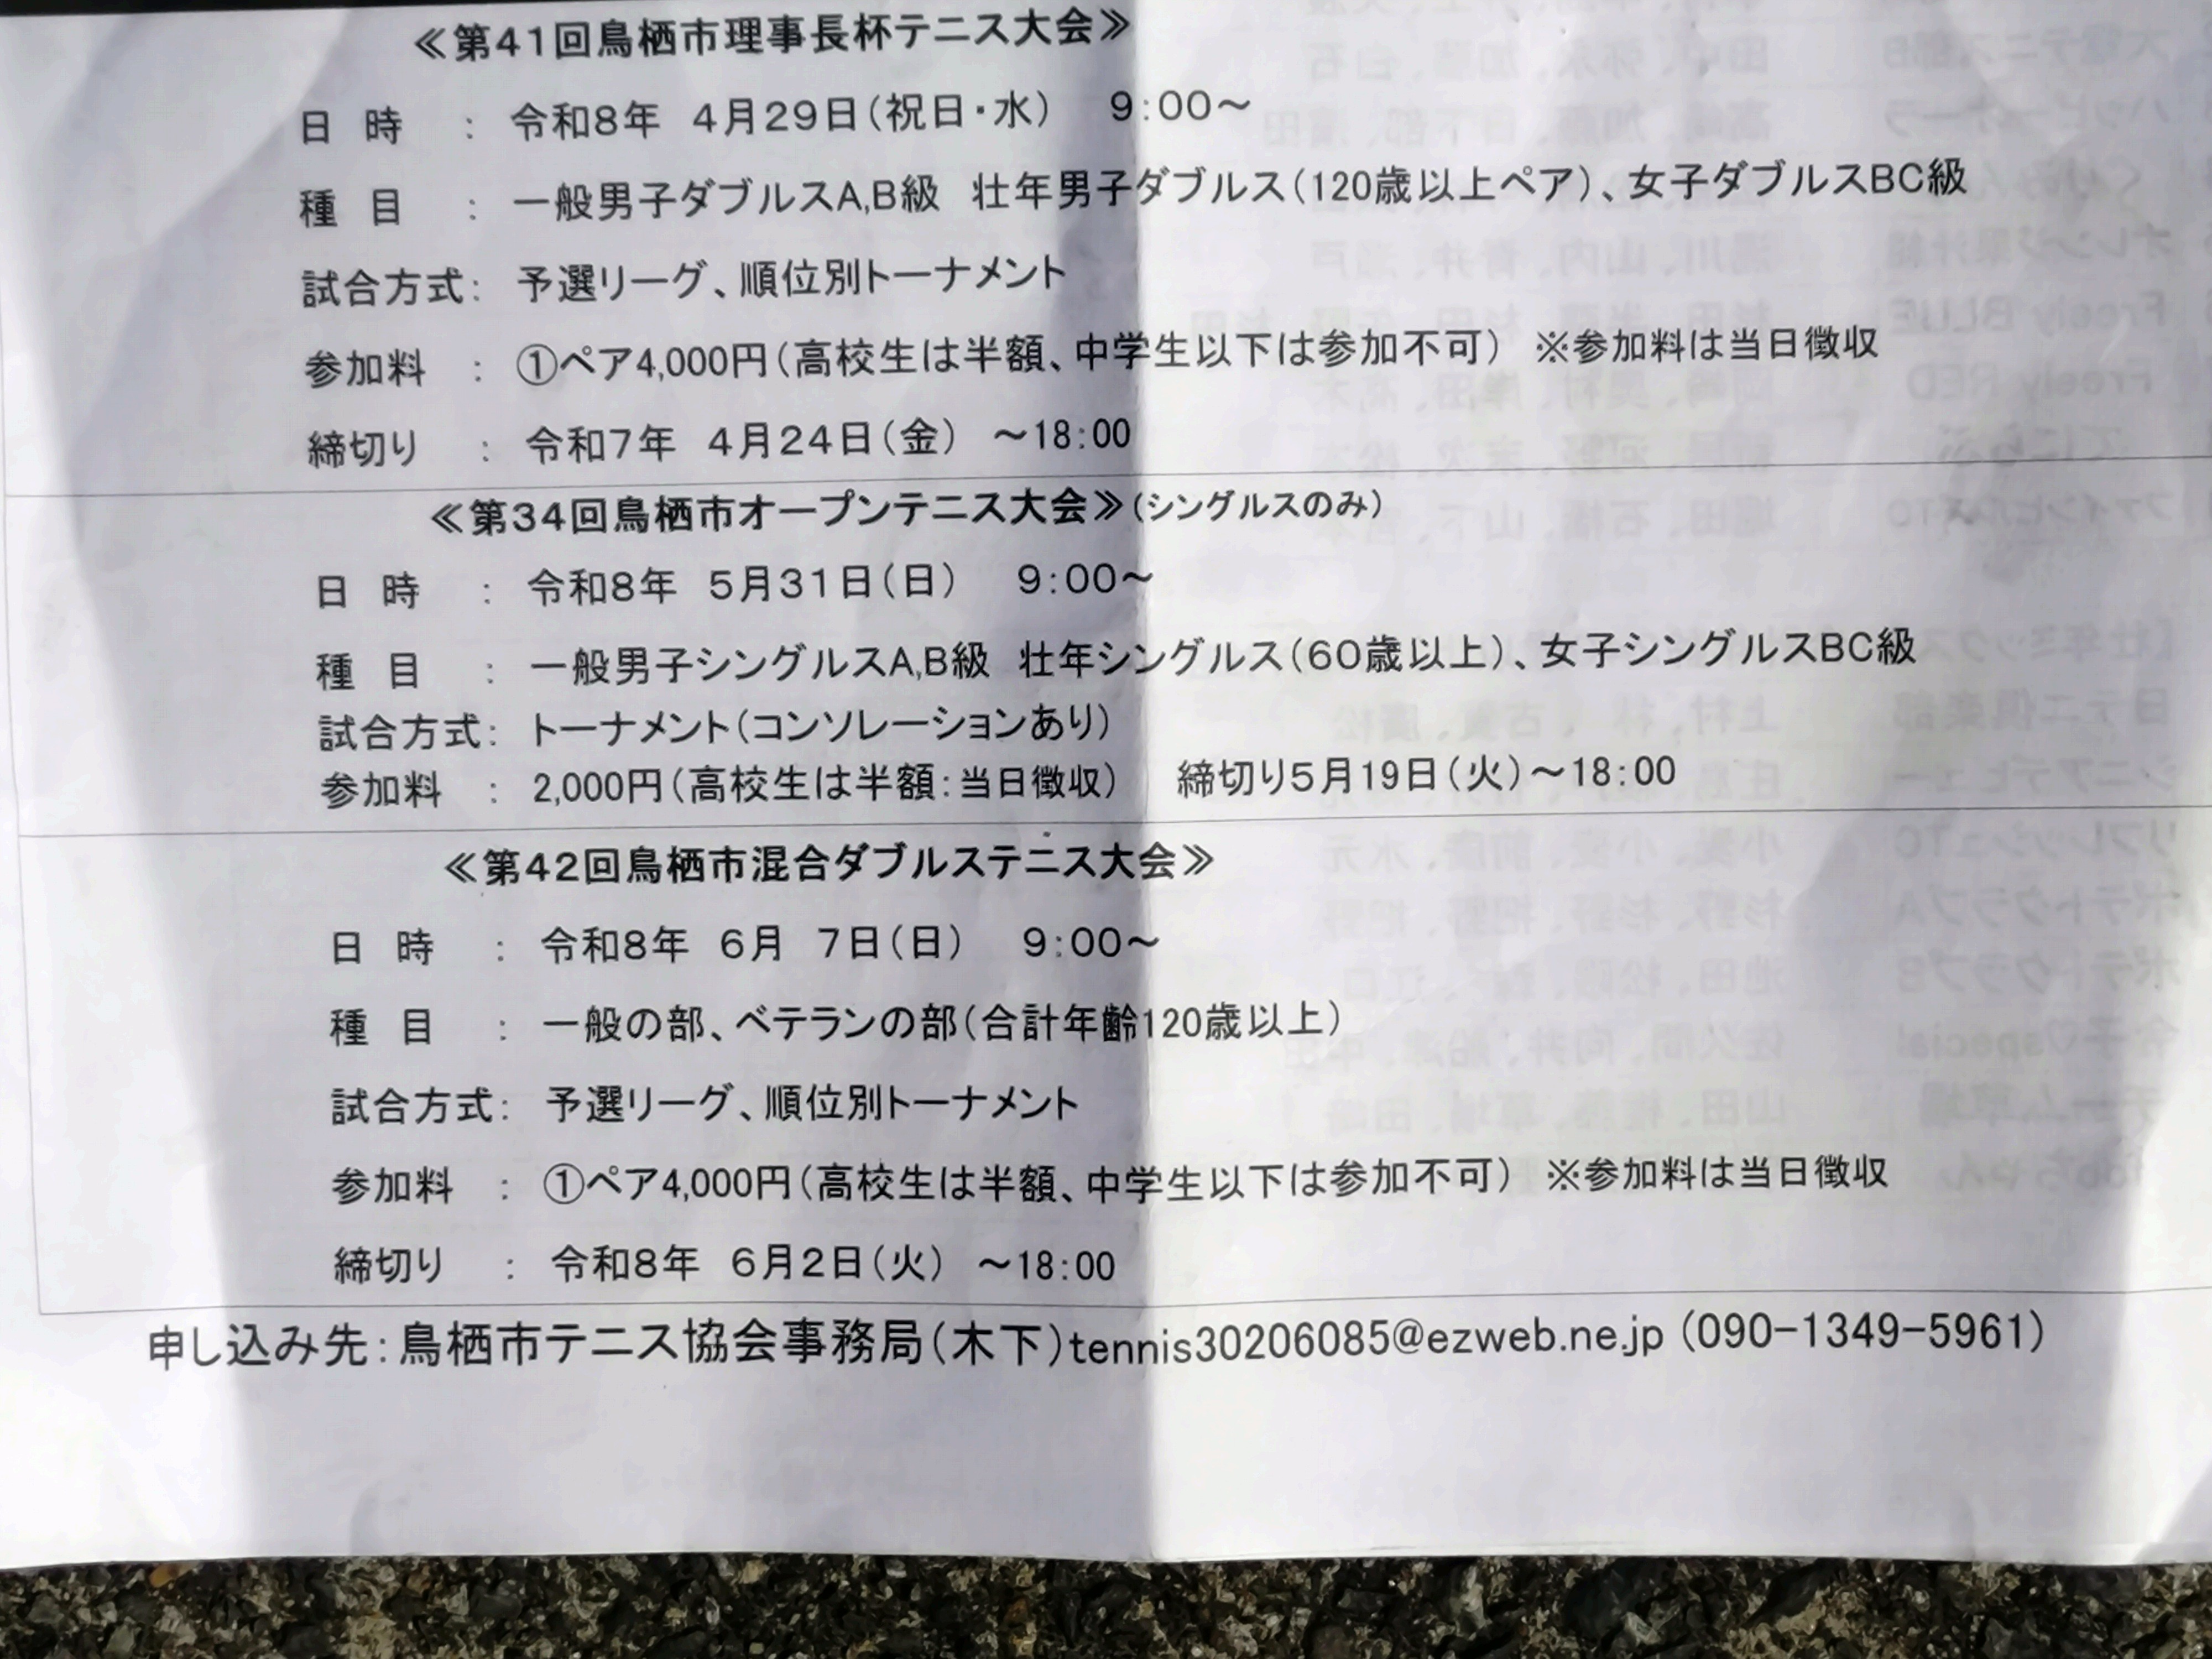 ≪第41回鳥栖市理事長杯テニス大会≫
日　時　：　令和8年　4月29日（祝日・水）　9：00～
種　目　：　一般男子ダブルスA,B級　壮年男子ダブルス（120歳以上ペア）、女子ダブルスBC級
試合方式：　予選リーグ、順位別トーナメント
参加料　：　①ペア4,000円（高校生は半額、中学生以下は参加不可）　※参加料は当日徴収
締切り　：　令和7年　4月24日（金）　～18：00
≪第34回鳥栖市オープンテニス大会≫（シングルスのみ）
日　時　：　令和8年　5月31日（日）　9：00～
種　目　：　一般男子シングルスA,B級　壮年シングルス（60歳以上）、女子シングルスBC級
試合方式：　トーナメント（コンソレーションあり）
参加料　：　2,000円（高校生は半額：当日徴収）　締切り5月19日（火）～18：00
≪第42回鳥栖市混合ダブルステニス大会≫
日　時　：　令和8年　6月　7日（日）　9：00～
種　目　：　一般の部、ベテランの部（合計年齢120歳以上）
試合方式：　予選リーグ、順位別トーナメント
参加料　：　①ペア4,000円（高校生は半額、中学生以下は参加不可）　※参加料は当日徴収
締切り　：　令和8年　6月2日（火）　～18：00
申し込み先：鳥栖市テニス協会事務局（木下）tennis30206085@ezweb.ne.jp（090-1349-5961）